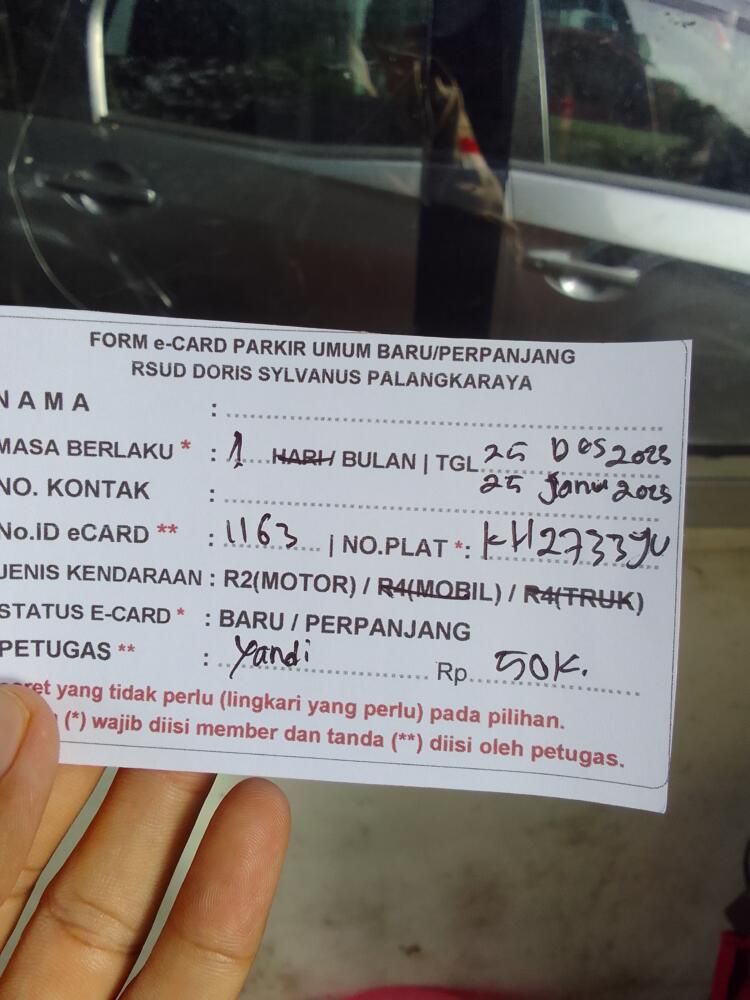 FORM e-CARD PARKIR UMUM BARU/PERPANJANG
RSUD DORIS SYLVANUS PALANGKARAYA
NAMA :
MASA BERLAKU * : 1 HARI/ BULAN | TGL 25 Des 2025
NO. KONTAK : 25 Janu 2025
No.ID eCARD ** : 1163 | NO.PLAT *: KH2733YU
JENIS KENDARAAN : R2(MOTOR) / R4(MOBIL) / R4(TRUK)
STATUS E-CARD * : BARU / PERPANJANG
PETUGAS ** : Yandi Rp 50K.
yang tidak perlu (lingkari yang perlu) pada pilihan.
(*) wajib diisi member dan tanda (**) diisi oleh petugas.